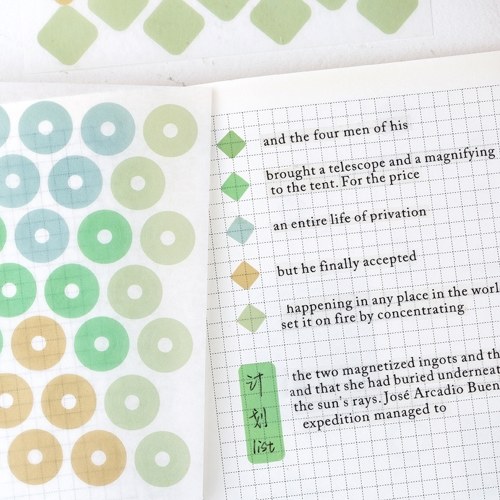 and the four men of his
brought a telescope and a magnifying
to the tent. For the price
an entire life of privation
but he finally accepted
happening in any place in the worl
set it on fire by concentrating
计
划
list
the two magnetized ingots and th
and that she had buried underneat
the sun's rays. José Arcadio Buen
expedition managed to